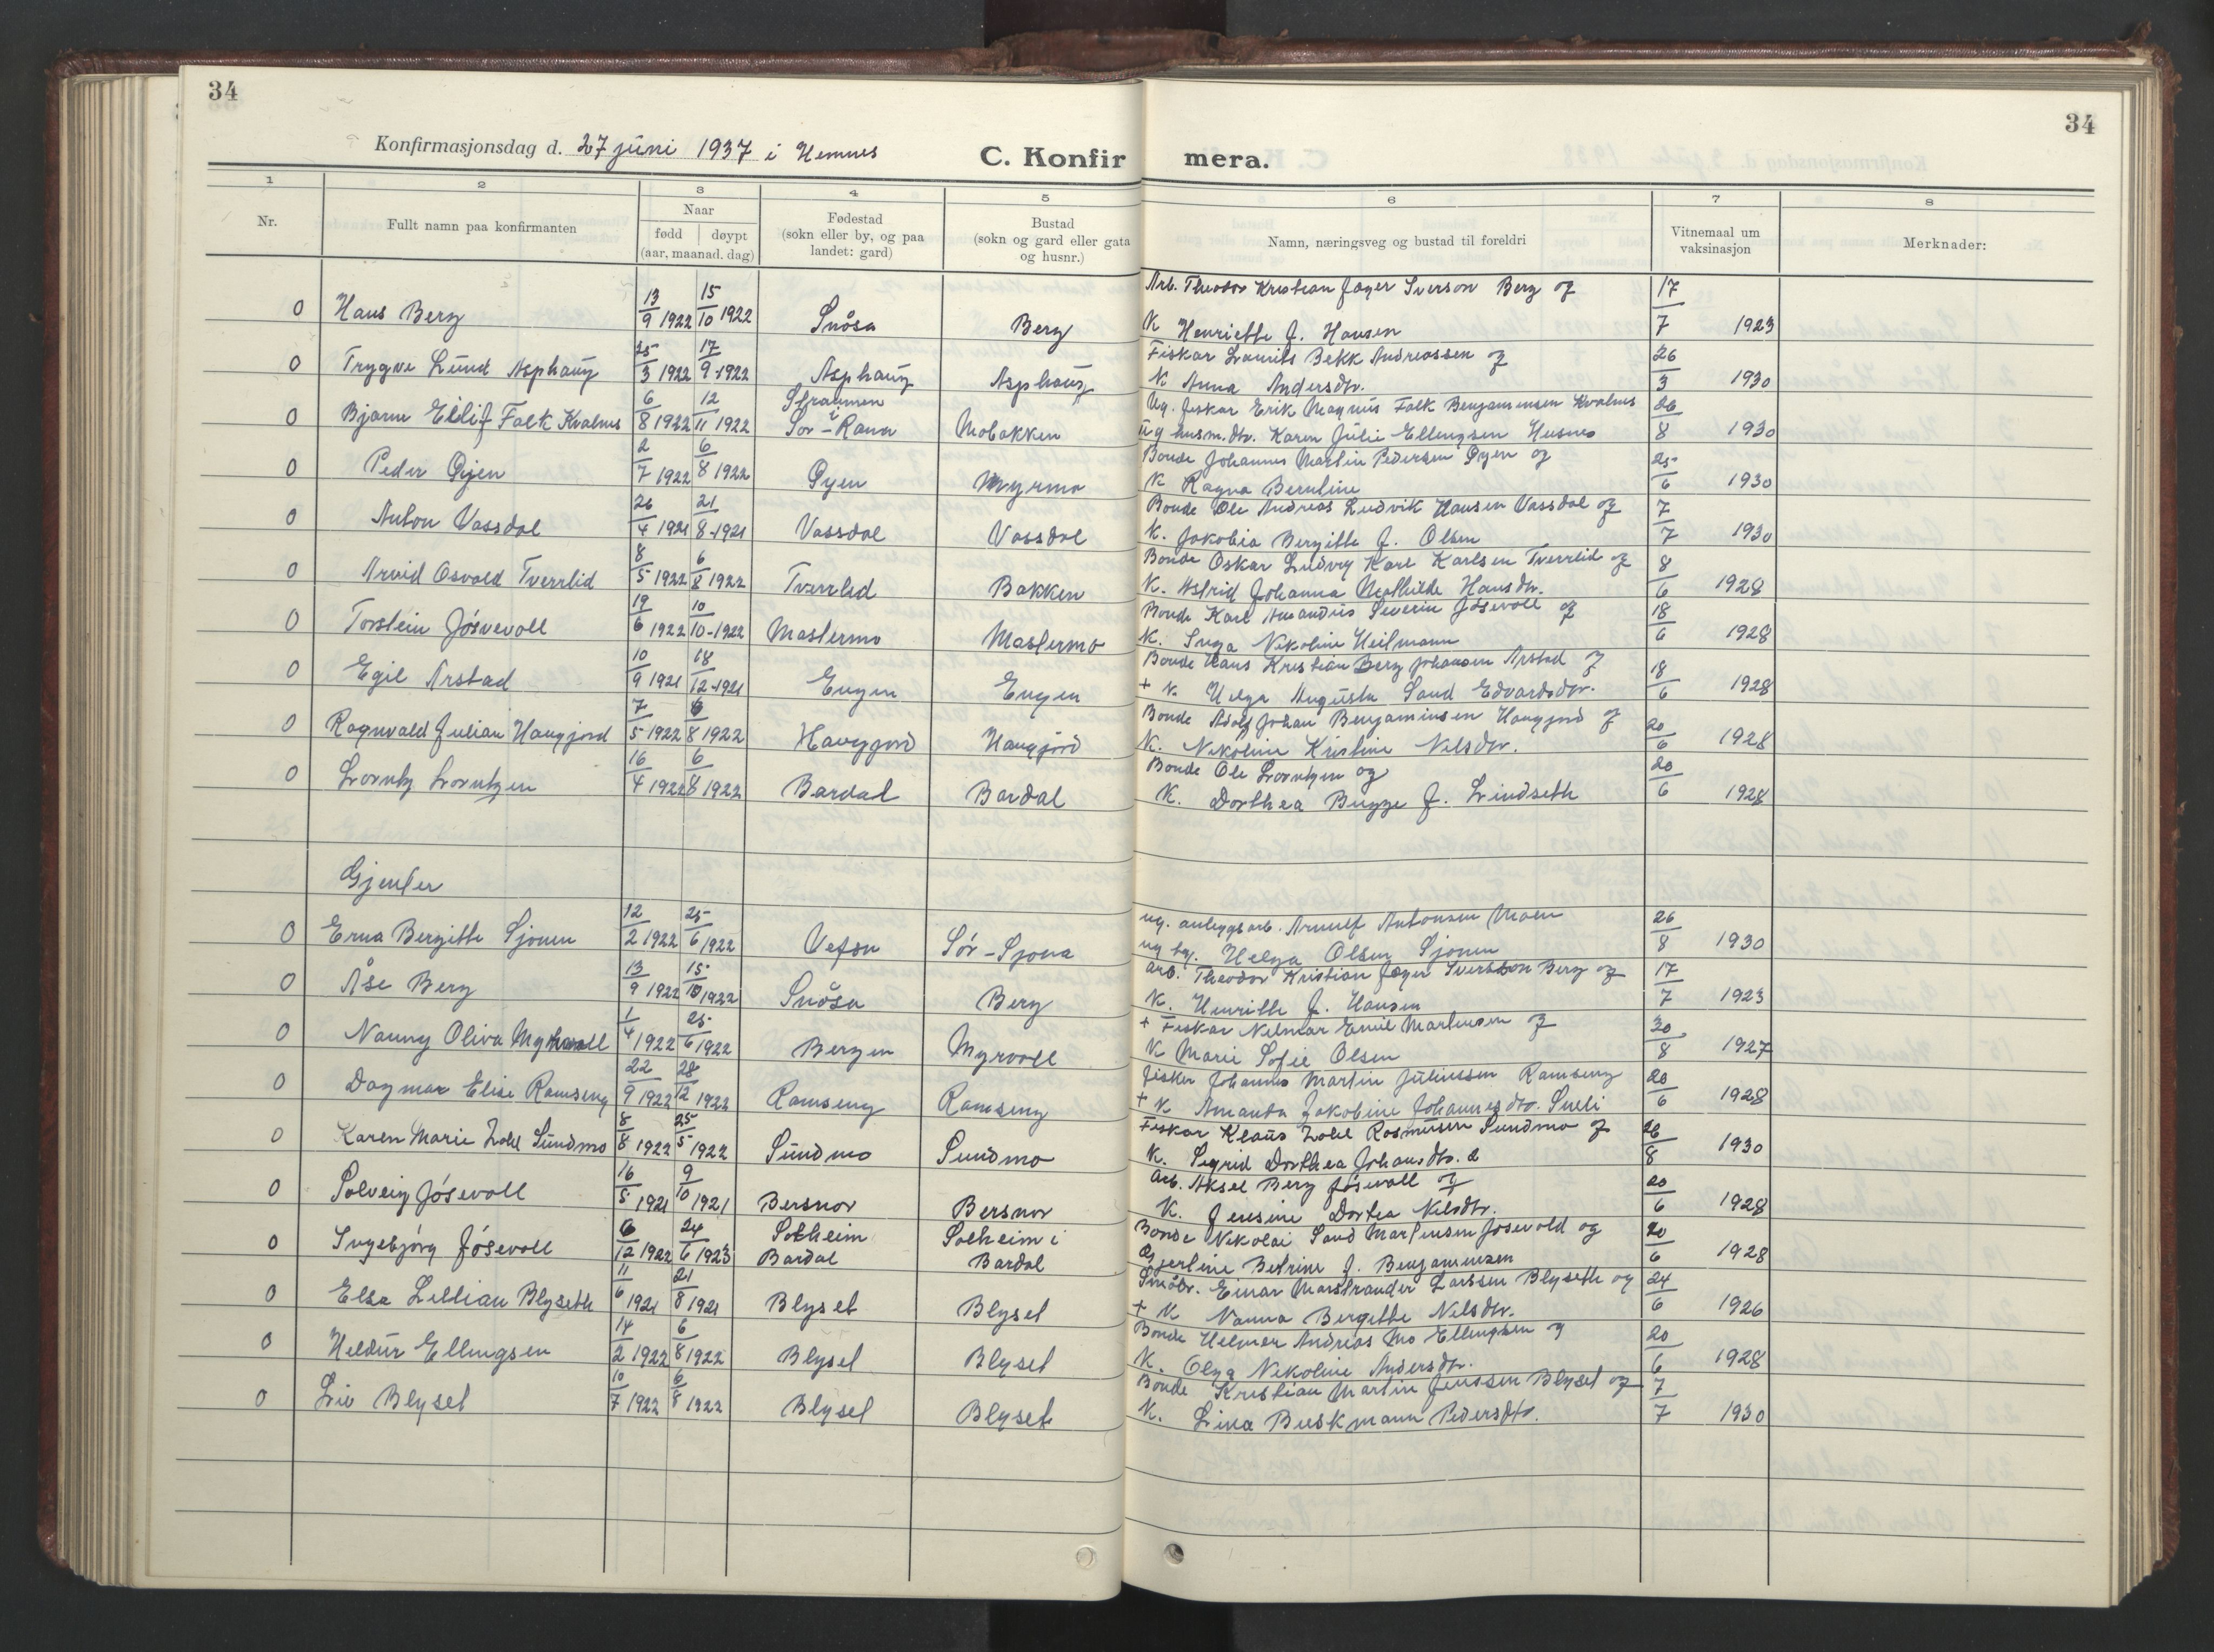 34
34
Konfirmasjonsdag d. 27 juni 1937 i Hemnes
C. Konfirmera.
1 2 3 4 5 6 7 8
Nr. Fullt namn paa konfirmanten Naar fødd døypt (aar, maanad. dag) Fødestad (sokn eller by, og paa landet: gard) Bustad (sokn og gard eller gata og husnr.) Namn, næringsveg og bustad til foreldri Vitnemaal um vaksinasjon Merknader:
0 Hans Berg 13/9 1922 15/10 1922 Snåsa Berg Arb. Theodor Kristian Jager Iverson Berg og 17/7 1923
K Henriette f. Hansen
0 Trygve Lund Asphaug 25/3 1922 17/9 1922 Asphaug Asphaug Fiskar Laurits Bekk Andreassen og 26/3 1930
K Anna Andersdtr.
0 Bjarne Eilif Falk Kvalnes 6/8 1922 12/11 1922 Straumen i Sør-Rana Mobakken Ug. fiskar Erik Magnus Falk Benjaminsen Kvalnes 26/8 1930
ug husm.dtr. Karen Julie Ellingsen Husnes
0 Peder Øyen 2/7 1922 6/8 1922 Øyen Myrmo Bonde Johannes Martin Pedersen Øyen og 25/6 1930
K Ragna Berntine
0 Anton Vassdal 26/4 1921 21/8 1921 Vassdal Vassdal Bonde Ole Andreas Ludvik Hansen Vassdal og 7/7 1930
K. Jakobia Bergitte f. Olsen
0 Arvid Osvald Tverrlid 8/5 1922 6/8 1922 Tverrlid Bakken Bonde Oskar Ludvig Karl Karlsen Tverrlid og 8/6 1928
K. Astrid Johanna Mathilde Hansdtr.
0 Torstein Jøsvevoll 19/6 1922 10/10-1922 Mastermo Mastermo Bonde Karl Amandus Severin Jøsevoll og 18/6 1928
K. Inga Nikoline Heilmann
0 Egil Arstad 10/9 1921 18/12-1921 Engen Engen Bonde Hans Kristian Berg Johansen Arstad og 18/6 1928
+ K. Helga Augusta Sand Edvardsdtr.
0 Ragnvald Julian Haugjord 5/7 1922 6/8 1922 Haugjord Haugjord Bonde Adolf Johan Benjaminsen Haugjord og 20/6 1928
K. Nikoline Kristine Nilsdtr.
0 Lorntz Lorntzen 16/4 1922 6/8 1922 Bardal Bardal Bonde Ole Lorntzen og 20/6 1928
K. Dorthea Bugge f. Lindseth
Gjenter
0 Erna Bergitte Sjonen 12/2 1922 25/6 1922 Vefsn Sør-Sjona ug. anleggsarb. Arnulf Antonsen Moen 26/8 1930
ug Helga Olsen Sjonen
0 Åse Berg 13/9 1922 15/10 1922 Snåsa Berg arb. Theodor Kristian Jager Iversson Berg og 17/7 1923
K. Henritte f. Hansen
0 Nanny Oliva Myrvoll 1/4 1922 25/6 1922 Bergen Myrvoll + Fiskar Nilmar Emil Martinsen og 30/8 1927
K Marie Sofie Olsen
0 Dagmar Elise Ramseng 22/9 1922 28/12 1922 Ramseng Ramseng fisker Johannes Martin Juliussen Ramseng 20/6 1928
+ K Amanda Jakobine Johannesdtr.
0 Karen Marie Zahl Sundmo 8/8 1922 25/5 1922 Sundmo Sundmo Fiskar Klaus Zahl Rasmussen Sundmo og 26/8 1930
K. Sigrid Dorthea Johansdtr.
0 Solveig Jøsevoll 16/5 1921 9/10 1921 Bersnor Bersnor arb. Aksel Berg Jøsevoll og 20/6 1928
K. Jensine Dortea Nilsdtr.
0 Ingebjørg Jøsevoll 6/12 1922 24/6 1923 Solheim Bardal Solheim i Bardal Bonde Nikolai Sand Martinsen Jøsevold og 20/6 1928
Gjertine Betrine f. Benjaminsen
0 Elsa Lillian Blyseth 11/6 1921 21/8 1921 Blyset Blyset Småbr. Einar Marstrander Larssen Blyseth og 24/6 1926
+ K Nanna Bergitte Nilsdtr.
0 Heldur Ellingsen 14/2 1922 6/8 1922 Blyset Blyset Bonde Helmer Andreas Mo Ellingsen og 20/6 1928
K. Olga Nikoline Andersdtr.
0 Liv Blyset 10/7 1922 6/8 1922 Blyset Blyset Bonde Kristian Martin Jenssen Blyset og 7/7 1930
K. Lina Buskmann Pedersdtr.